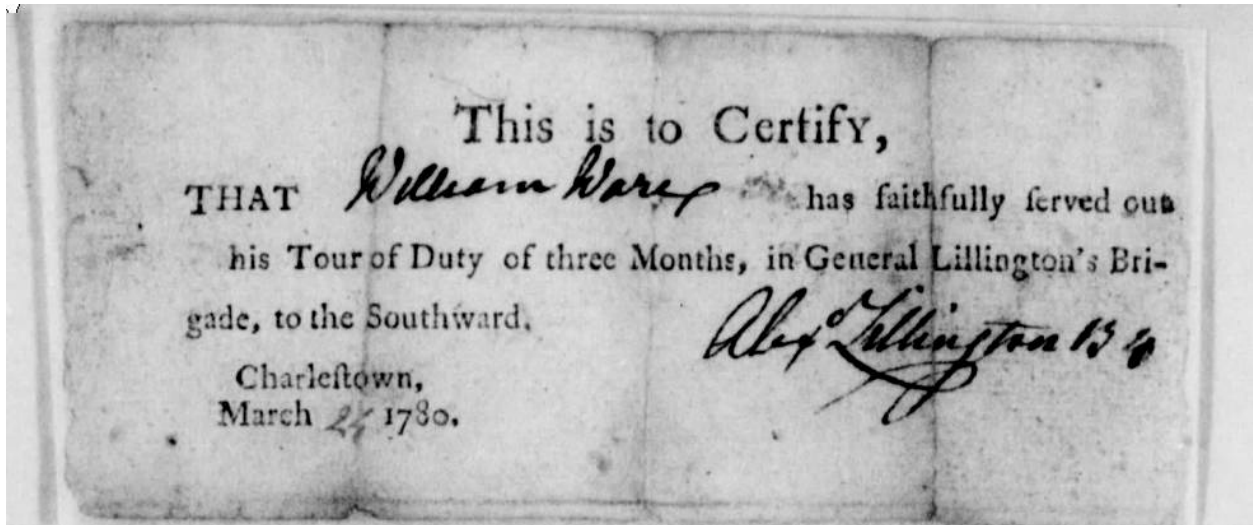 This is to Certify,
THAT William Ware has faithfully ſerved out
his Tour of Duty of three Months, in General Lillington's Bri-
gade, to the Southward.
Alexd Lillington B G
Charleſtown,
March 24 1780.